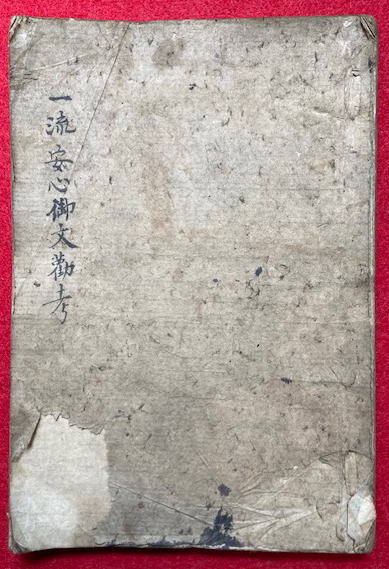 一流安心御文勧考